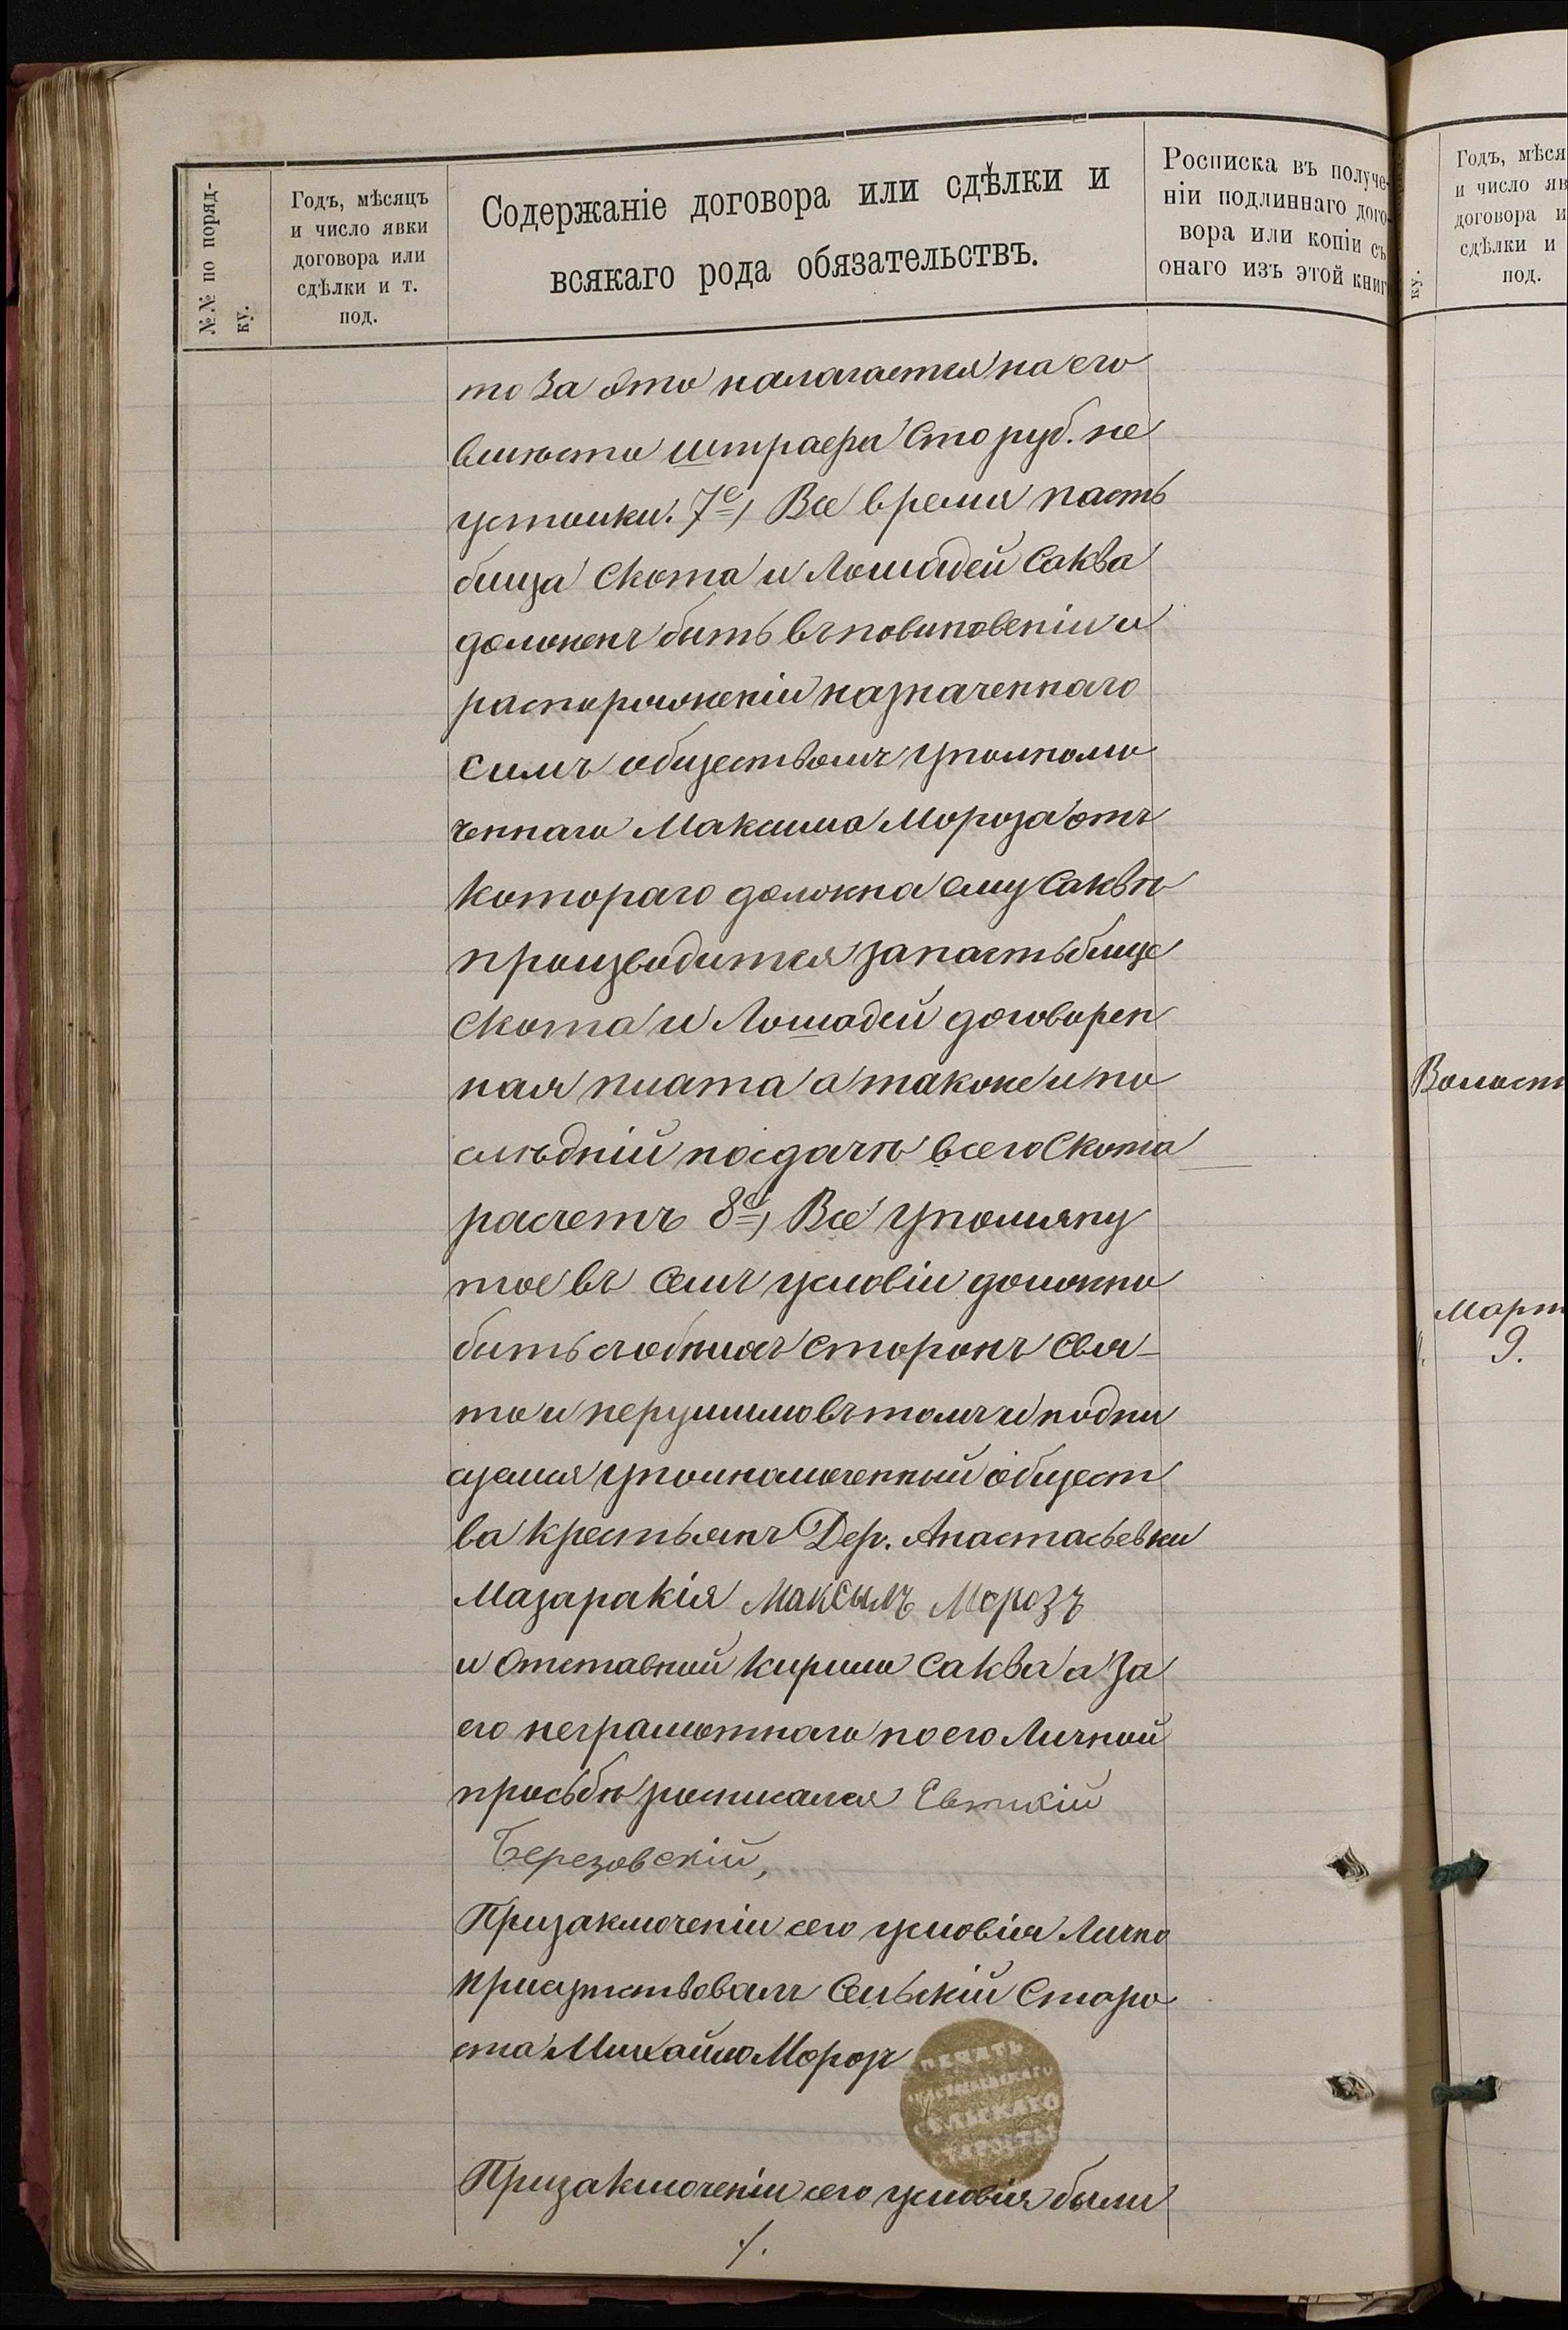 №№ по поряд-
ку.
Годъ, мѣсяцъ
и число явки
договора или
сдѣлки и т.
под.
Содержаніе договора или сдѣлки и
всякаго рода обязательствъ.
Росписка въ получе-
ніи подлиннаго дого-
вора или копіи съ
онаго изъ этой книг
то за это налагается на его
вмѣсто штрафа Сто руб. не
устоики. 7е) Все время пасть
бища Скота и Лошадей Саква
долженъ быть въ повиновеніи и
распоряженіи назначеннаго
симъ обществомъ уполномо
ченнаго Максима Мороза отъ
котораго должна ему Саквѣ
производится за пастьбище
Скота и Лошадей договорен
ная плата а также и по
слѣдній по сдачѣ всего Скота
расчетъ 8е) Все упомяну
тое въ семъ условіи должно
быть съ обѣихъ Сторонъ Свя-
то и нерушимо въ томъ и подпи
суемся уполномоченный общест
ва крестьянъ Дер. Анастасьевки
Мазаракія Максымъ Морозъ
и Отставной Кирило Саква а За
его неграмотнаго по его Личной
просьбѣ росписался Евтихій
Березовскій,
При заключеніи сего условія Лично
присутствовалъ Сельскій Старо
ста Михайло Морозъ
ПЕЧАТЬ
СЕЛЬСКАГО
СТАРОСТЫ
При заключеніи сего условія были
/.
Годъ, мѣся
и число яв
договора и
сдѣлки и
под.
ку.
Волост
Март
9.